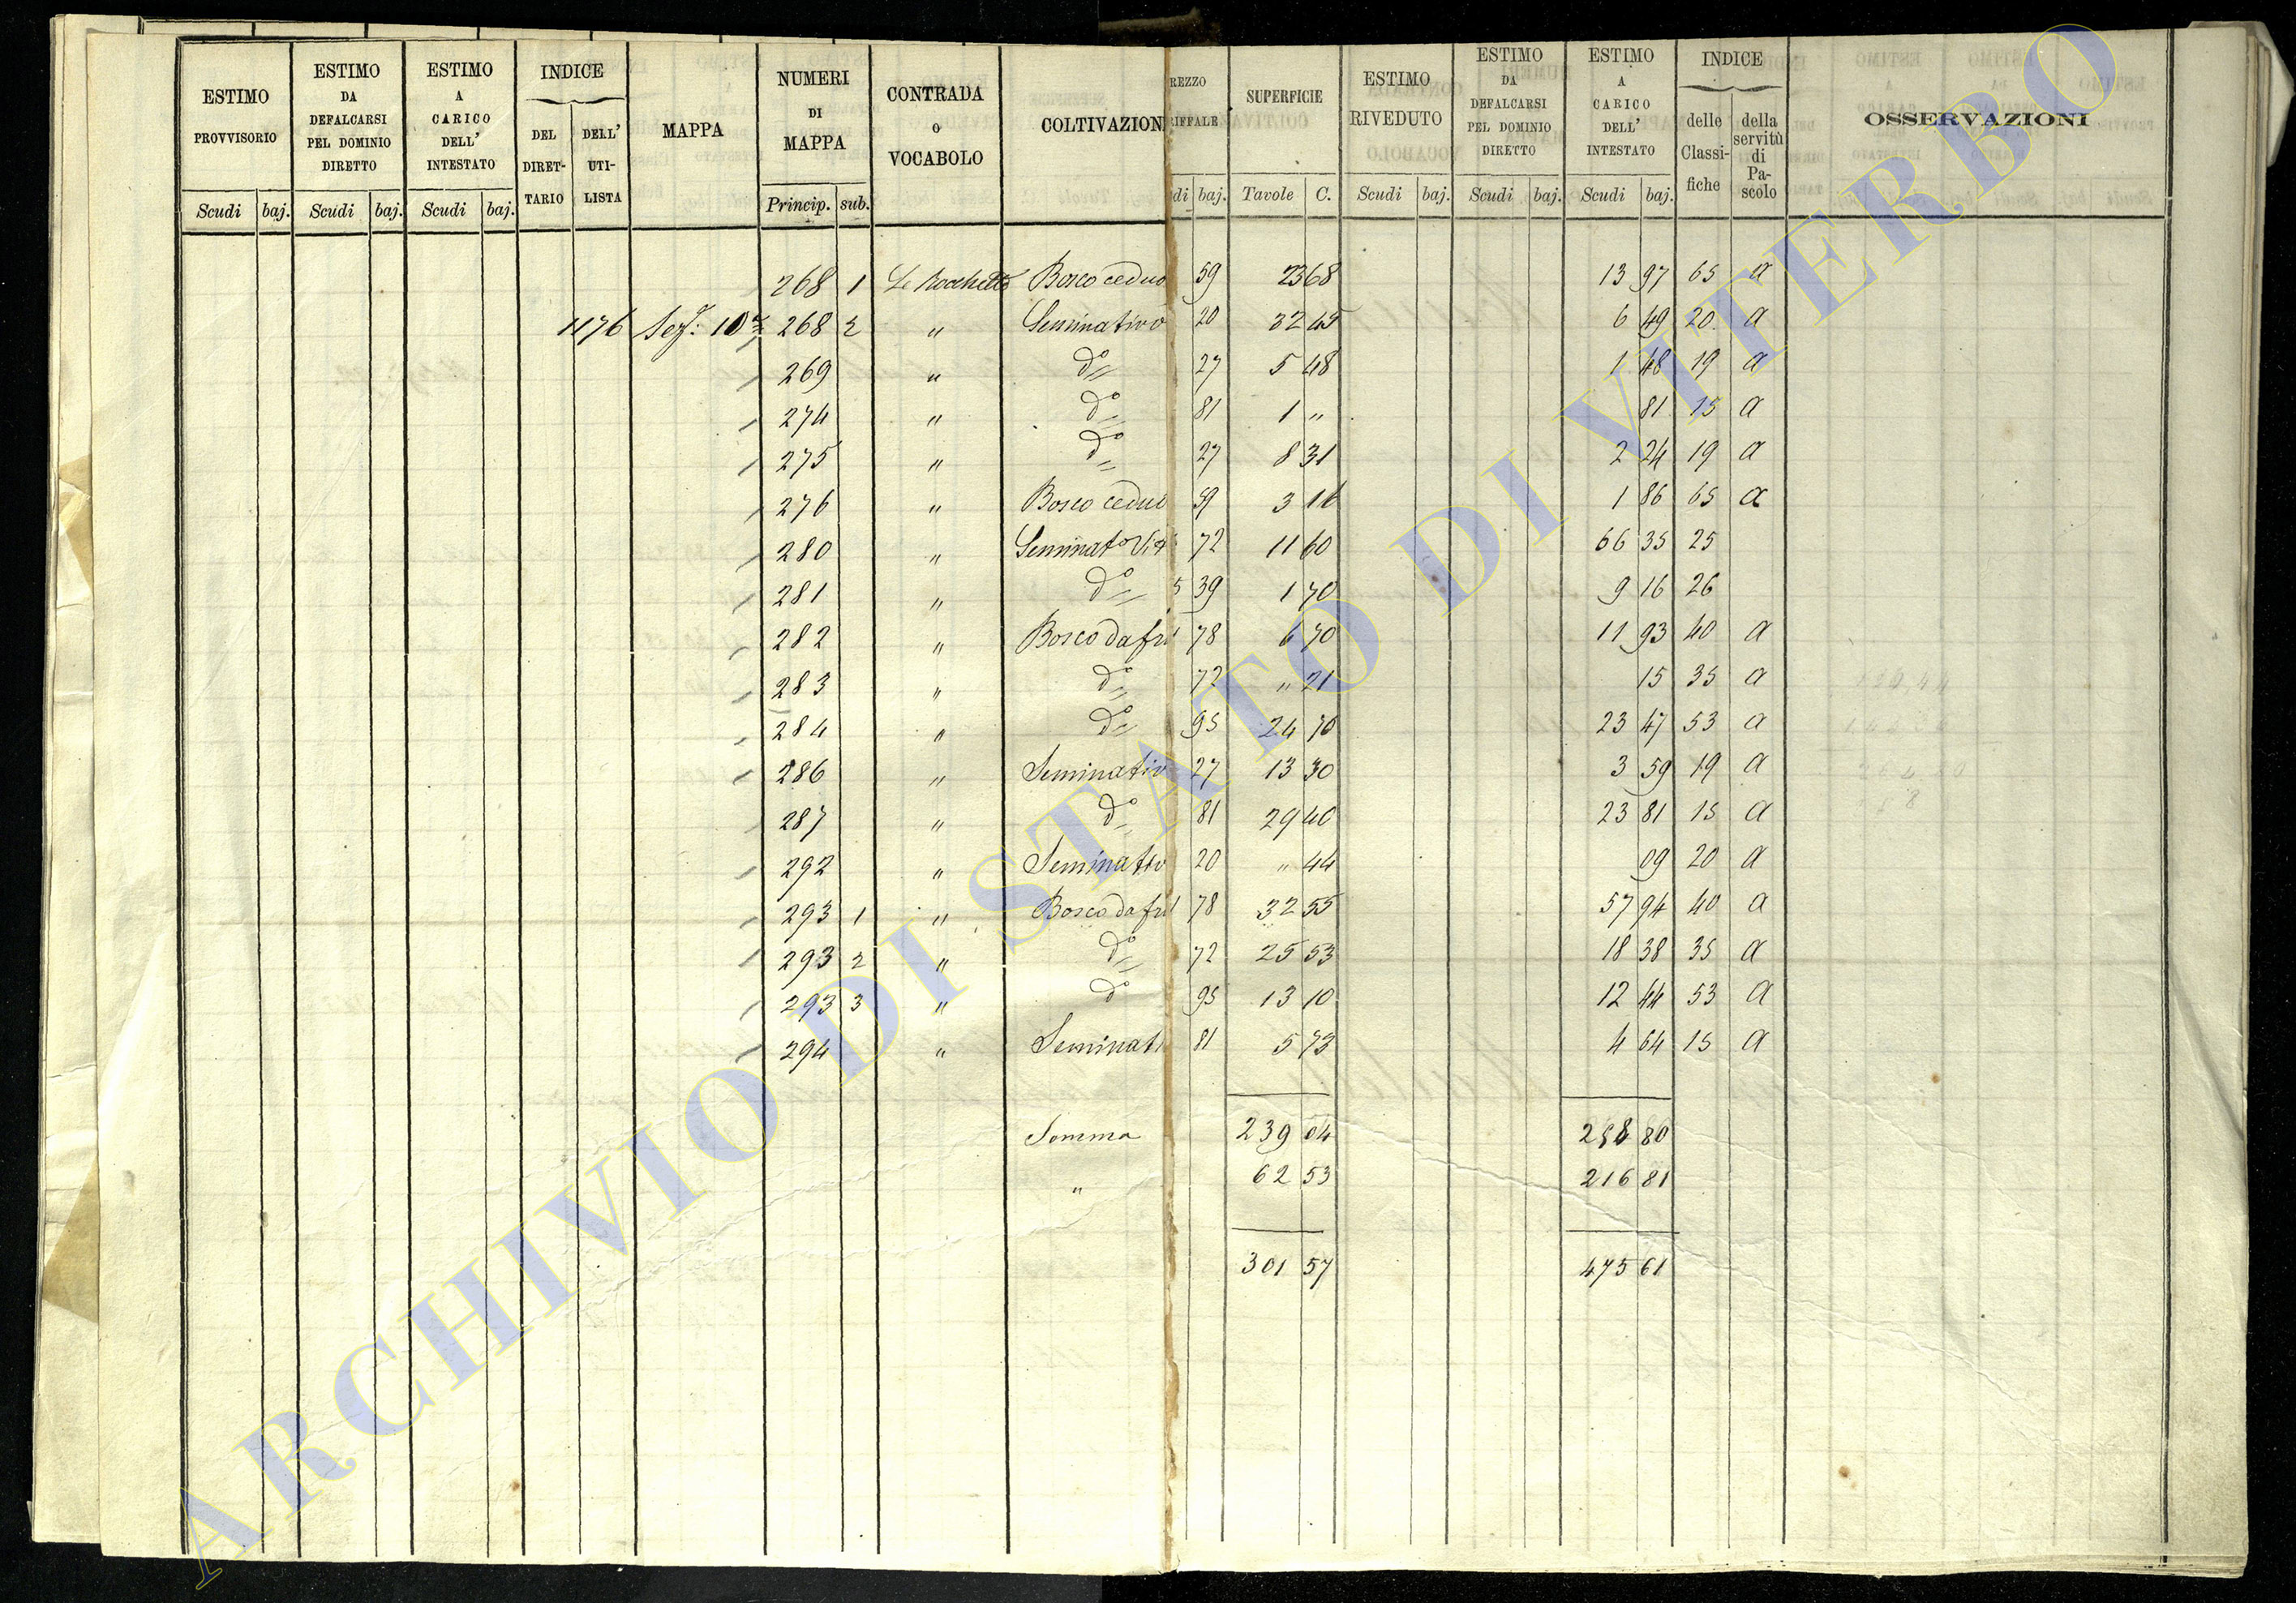 ESTIMO PROVVISORIO | ESTIMO DA DEFALCARSI PEL DOMINIO DIRETTO | ESTIMO A CARICO DELL' INTESTATO | INDICE DEL DIRETTARIO | DELL' UTILISTA | MAPPA | NUMERI DI MAPPA | CONTRADA O VOCABOLO | COLTIVAZION | REZZO RIFFALE | SUPERFICIE | ESTIMO RIVEDUTO | ESTIMO DA DEFALCARSI PEL DOMINIO DIRETTO | ESTIMO A CARICO DELL' INTESTATO | INDICE delle Classifiche | della servitù di Pascolo | OSSERVAZIONI
Scudi | baj. | Scudi | baj. | Scudi | baj. | Princip. | sub. | di | baj. | Tavole | C. | Scudi | baj. | Scudi | baj. | Scudi | baj.
268 1 Le Rocchette Bosco ceduo 59 23 68 13 97 65 a
1176 Sez: 10ª 268 2 " Seminativo 20 32 45 6 49 20 a
269 " do 27 5 48 1 48 19 a
274 " do 81 1 " 81 15 a
275 " do 27 8 31 2 24 19 a
276 " Bosco ceduo 59 3 16 1 86 65 a
280 " Seminato Vit 72 11 60 66 35 25
281 " do 5 39 1 70 9 16 26
282 " Bosco da fru 78 6 70 11 93 40 a
283 " do 72 " 21 15 35 a
284 " do 95 24 70 23 47 53 a
286 " Seminativo 27 13 30 3 59 19 a
287 " do 81 29 40 23 81 15 a
292 " Seminativo 20 " 44 09 20 a
293 1 " Bosco da fru 78 32 55 57 94 40 a
293 2 " do 72 25 53 18 38 35 a
293 3 " do 95 13 10 12 44 53 a
294 " Seminati 81 5 73 4 64 15 a
Somma 239 04 258 80
" 62 53 216 81
301 57 475 61
ARCHIVIO DI STATO DI VITERBO